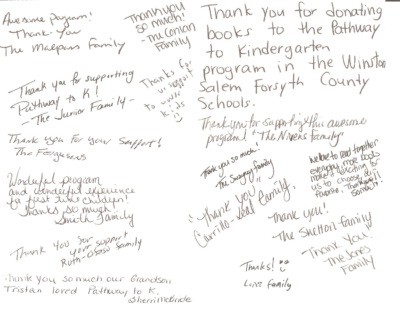 Awesome program!
Thank You
The Maepens Family
Thank you
so much!
- The Conlon
Family
Thank you for supporting
Pathway to K!
- The Junior Family -
Thanks for
ur support
to our
kids
Thank you for your Support!
The Fergusons
Wonderful program
and wonderful experience
for just like children!
Thanks so much,
Smith Family
Thank you for
your support
Ruth-Osoko family
Thank you so much our Grandson
Tristan loved Pathway to K.
Sherri McBride
Thank you for donating
books to the Pathway
to Kindergarten
program in the Winston
Salem Forsyth County
Schools.
Thank you for supporting this awesome
program! "The Nivens family"
Thank you so much!
The Swaping family
We love to read together
everyday, more books
make it exciting for
us to choose a
favorite. Thank you!!
"Thank you"
Carrillo-Leal family.
Thank you!
The Sutton family
Thanks!
Love family
Thank You!
The Jones
Family